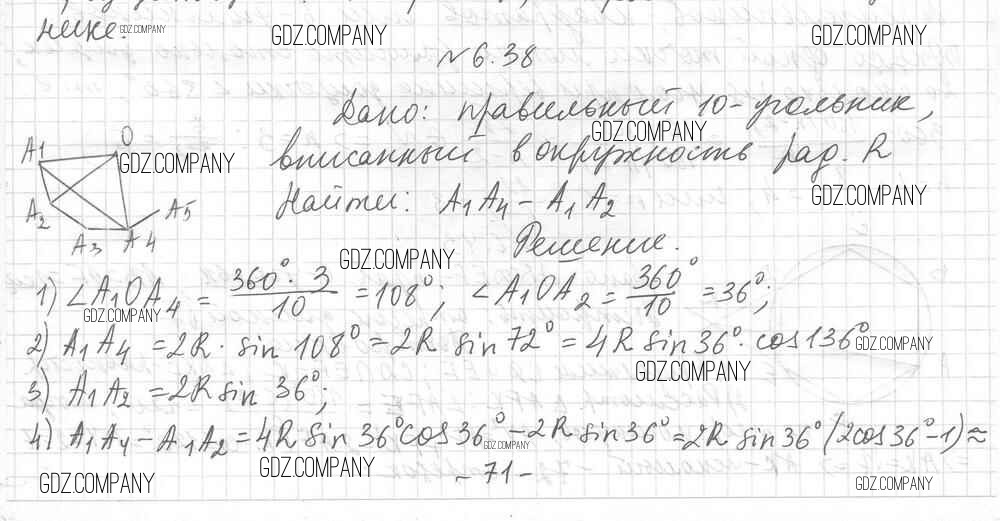 нике. GDZ.COMPANY
GDZ.COMPANY GDZ.COMPANY
№ 6.38
Дано: правильный 10-угольник,
GDZ.COMPANY
вписанный в окружность рад. R
Найти: A₁A₄ - A₁A₂
GDZ.COMPANY
Решение.
A1 O GDZ.COMPANY
A2 A5
A3 A4
GDZ.COMPANY
1) ∠A₁OA₄ = 360° · 3 / 10 = 108°; ∠A₁OA₂ = 360° / 10 = 36°;
GDZ.COMPANY
2) A₁A₄ = 2R · sin 108° = 2R sin 72° = 4R sin 36° · cos 136° GDZ.COMPANY
GDZ.COMPANY
3) A₁A₂ = 2R sin 36°;
4) A₁A₄ - A₁A₂ = 4R sin 36° cos 36° - 2R sin 36° = 2R sin 36° (2cos 36° - 1) ≈
GDZ.COMPANY
GDZ.COMPANY
- 71 -
GDZ.COMPANY GDZ.COMPANY